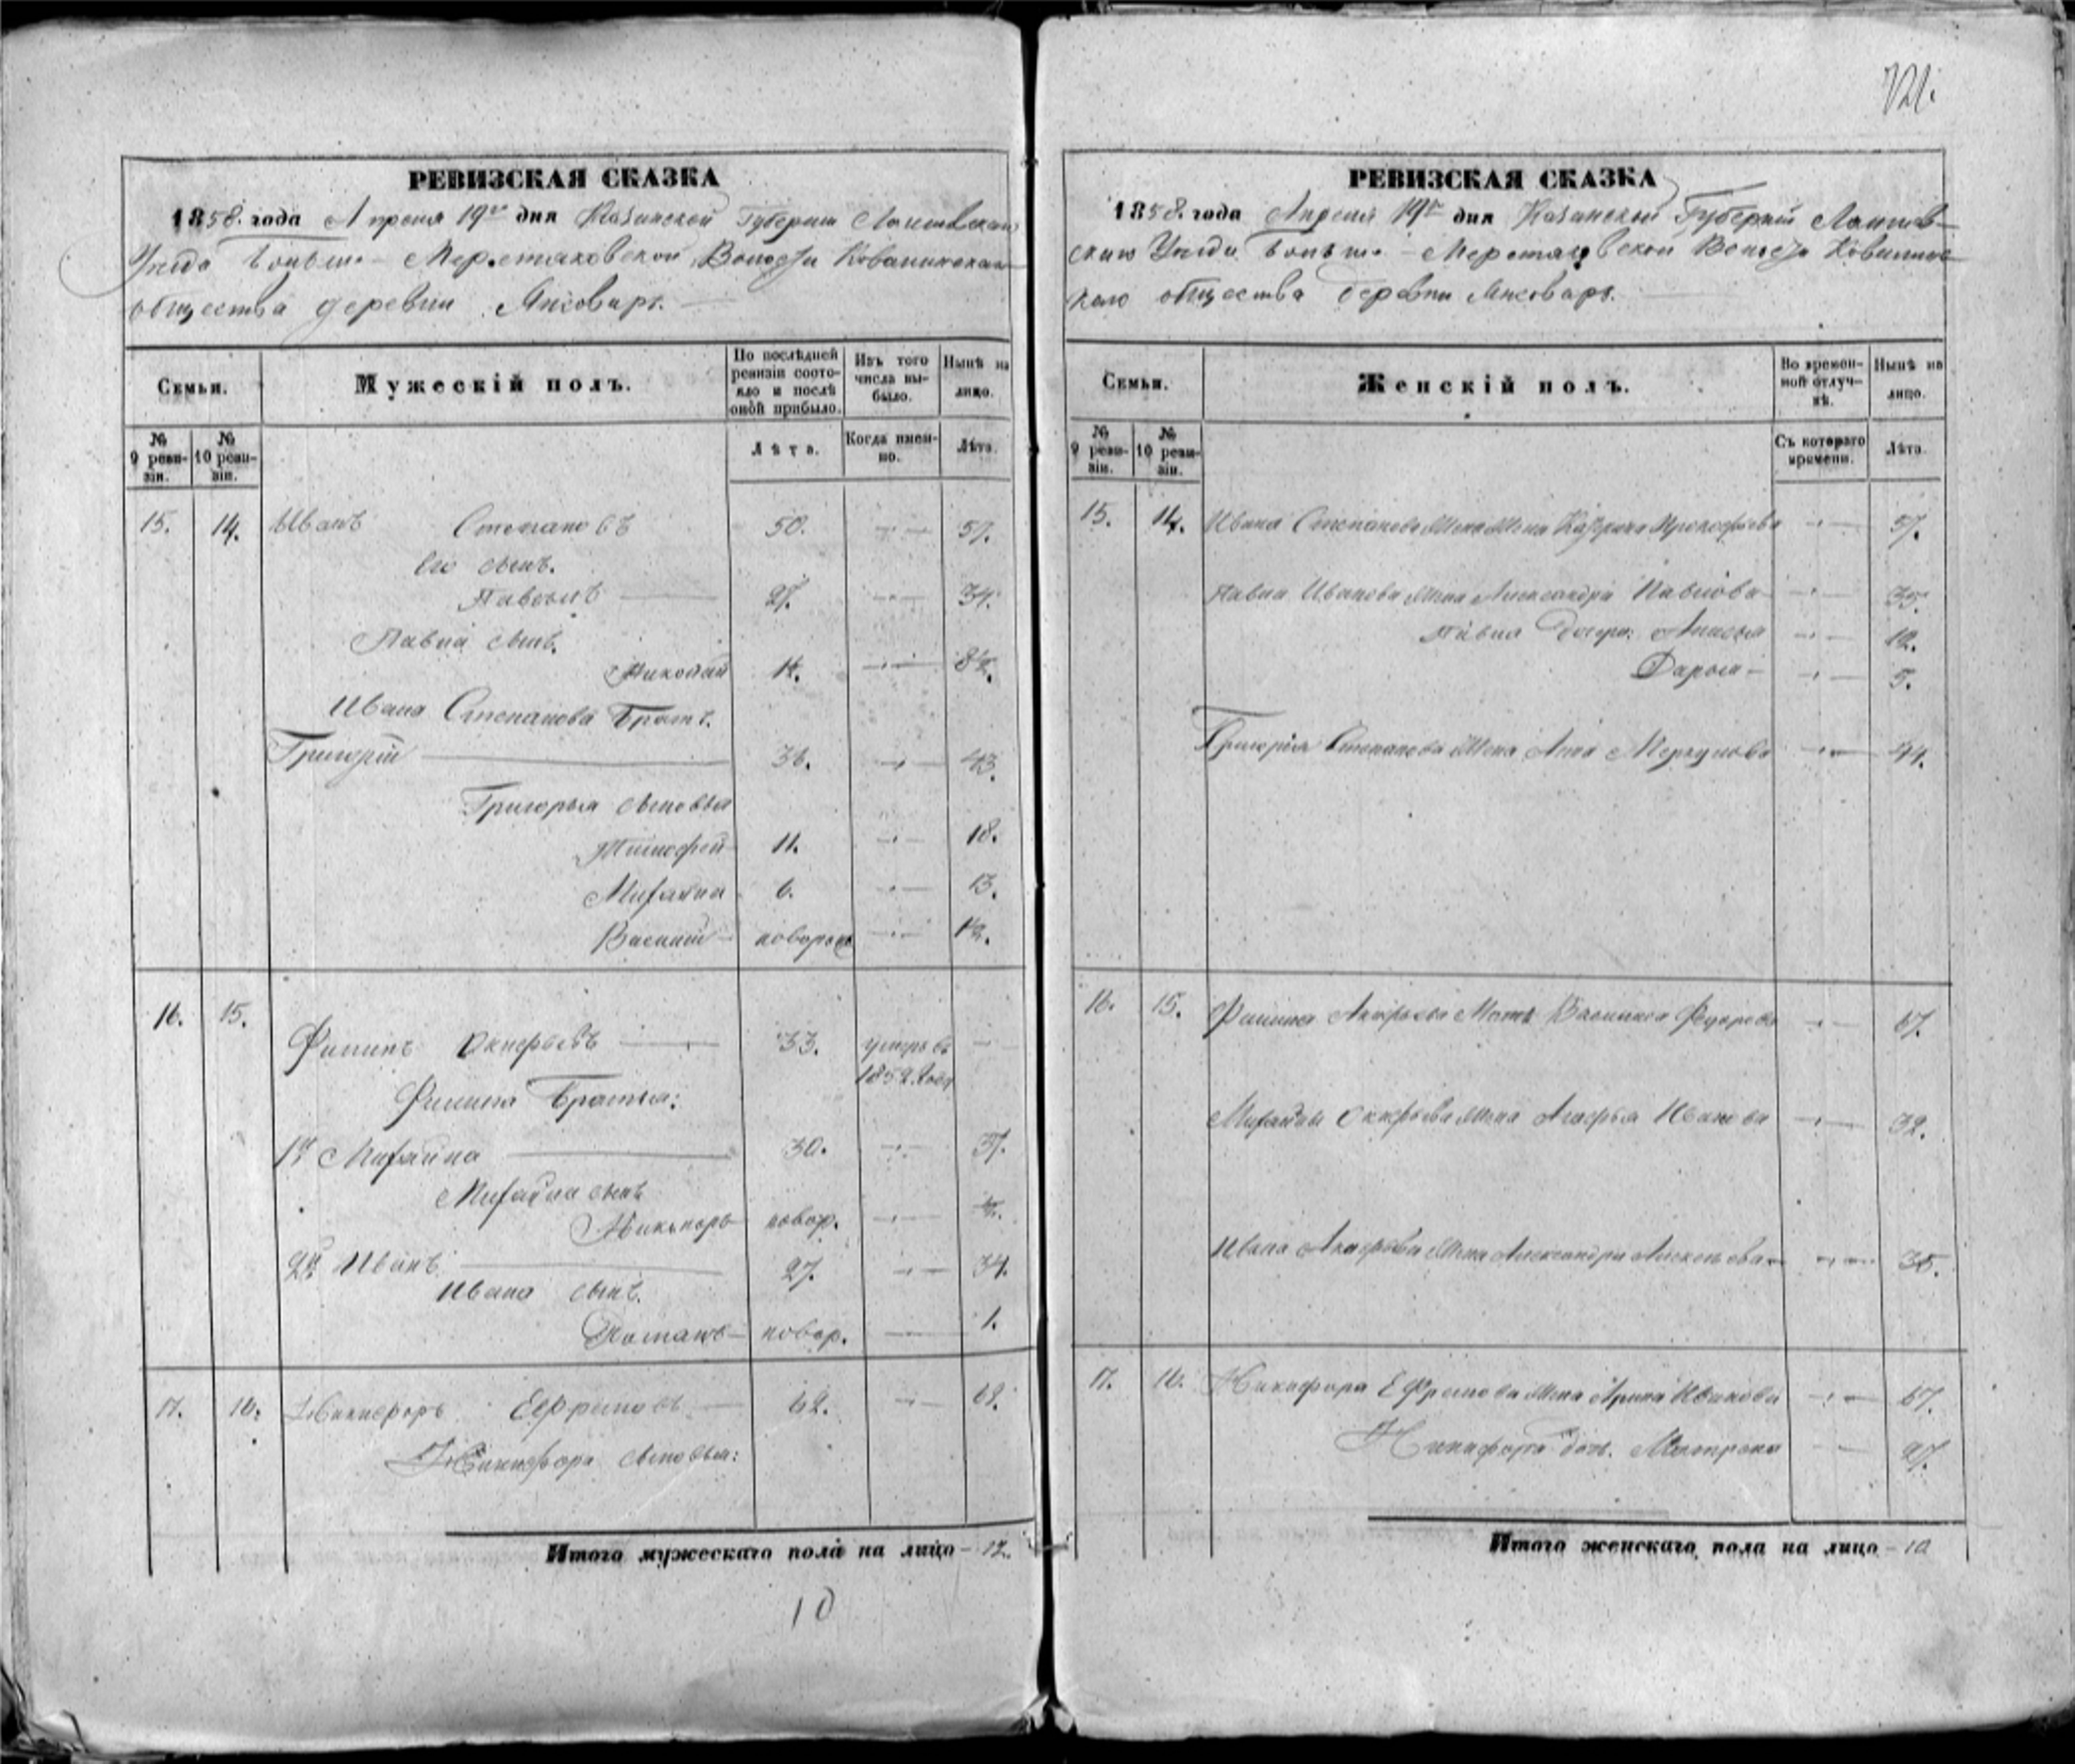 121.
РЕВИЗСКАЯ СКАЗКА
1858. года Апреля 19го дня Казанской Губерніи Лаишевскаго
Уѣзда Больше-Меретяковской Волости Ковалинскаго
общества деревни Янсоваръ.
Семьи.
Мужескій полъ.
По послѣдней ревизіи состояло и послѣ оной прибыло.
Изъ того числа выбыло.
Нынѣ на лицо.
№ 9 ревизіи.
№ 10 ревизіи.
Лѣта.
Когда именно.
Лѣта.
15. 14. Иванъ Степановъ 50. 57.
Его сынъ.
Павелъ 27. 34.
Павла сынъ.
Николай
Ивана Степанова Братъ.
Григорій 36. 43.
Григорья сыновья
Тимофей 11. 18.
Михайла 6. 13.
Василій новорож
16. 15.
Филипъ Окифьевъ 33. умеръ въ
1852. году
Филипа Братья:
1й Михайла 30. 37.
Михайла сынъ
Никаноръ новор.
2й Иванъ 27. 34.
Ивана сынъ.
новор. 1.
17. 16. Никифоръ Ефремовъ 62. 69.
Никифора сыновья:
Итого мужескаго пола на лицо 12.
10
РЕВИЗСКАЯ СКАЗКА
1858. года Апреля 19го дня Казанской Губерніи Лаишев-
скаго Уѣзда Больше-Меретяковской Волости Ковалинс-
каго общества деревни Янсоваръ.
Семьи.
Женскій полъ.
Во временной отлучкѣ.
Нынѣ на лицо.
№ 9 ревизіи.
№ 10 ревизіи.
Съ котораго времени.
Лѣта.
15. 14. Ивана Степанова Жена Прокофьева 57.
Павла Иванова Жена Александра Павлова 35.
Павла дочри: Анисья 12.
Дарья 5.
Григорья Степанова Жена Анна 44.
16. 15. Филипа Акифьева Мать Василиса Федорова 67.
Михайлы Окифьева Жена Агафья Иванова 32.
Ивана Акифьева Жена Александра Алексѣева 35.
17. 16. Никифора Ефремова жена Арина Иванова 67.
Никифора доч. Матрена 27.
Итого женскаго пола на лицо 10